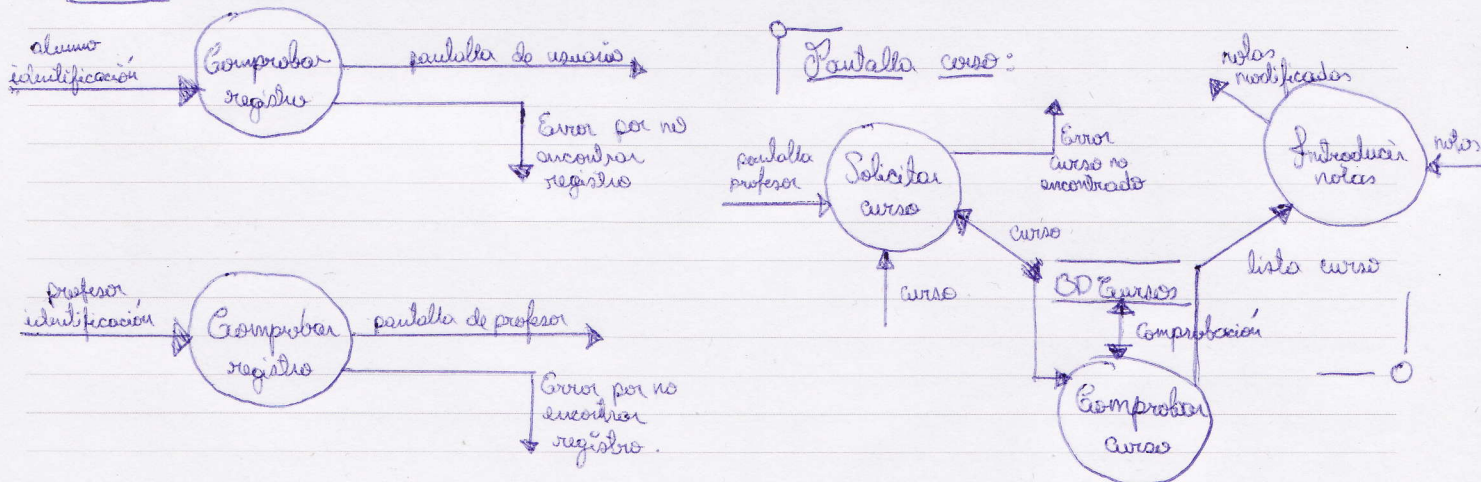 alumno
identificación
Comprobar
registro
pantalla de usuario
Error por no
encontrar
registro
profesor
identificación
Comprobar
registro
pantalla de profesor
Error por no
encontrar
registro.
Pantalla curso:
pantalla
profesor
Solicitar
curso
Error
curso no
encontrado
curso
curso
BD Cursos
Comprobación
Comprobar
curso
lista curso
notas
modificadas
Introducir
notas
notas